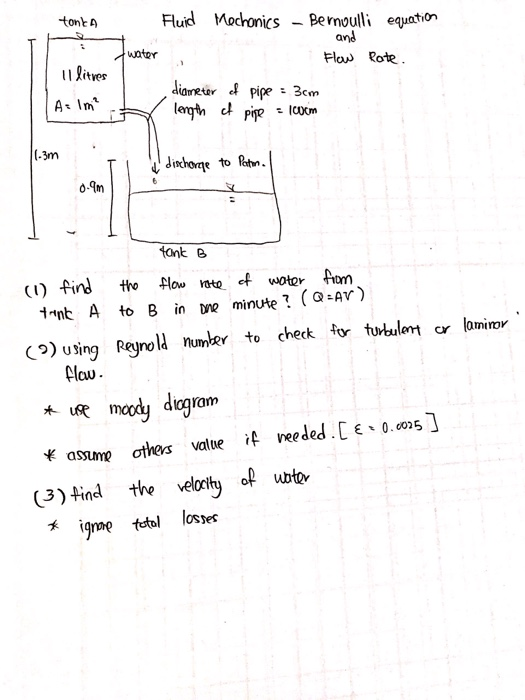 tank A
Fluid Mechanics – Bernoulli equation
and
Flow Rate.
water
11 litres
A = 1m²
diameter of pipe = 3cm
length of pipe = 100cm
1.3m
discharge to Patm.
0.9m
tank B
(1) find the flow rate of water from
tank A to B in one minute? (Q=AV)
(2) using Reynold number to check for turbulent or laminar
flow.
* use moody diagram
* assume others value if needed. [ε = 0.0025]
(3) find the velocity of water
* ignore total losses